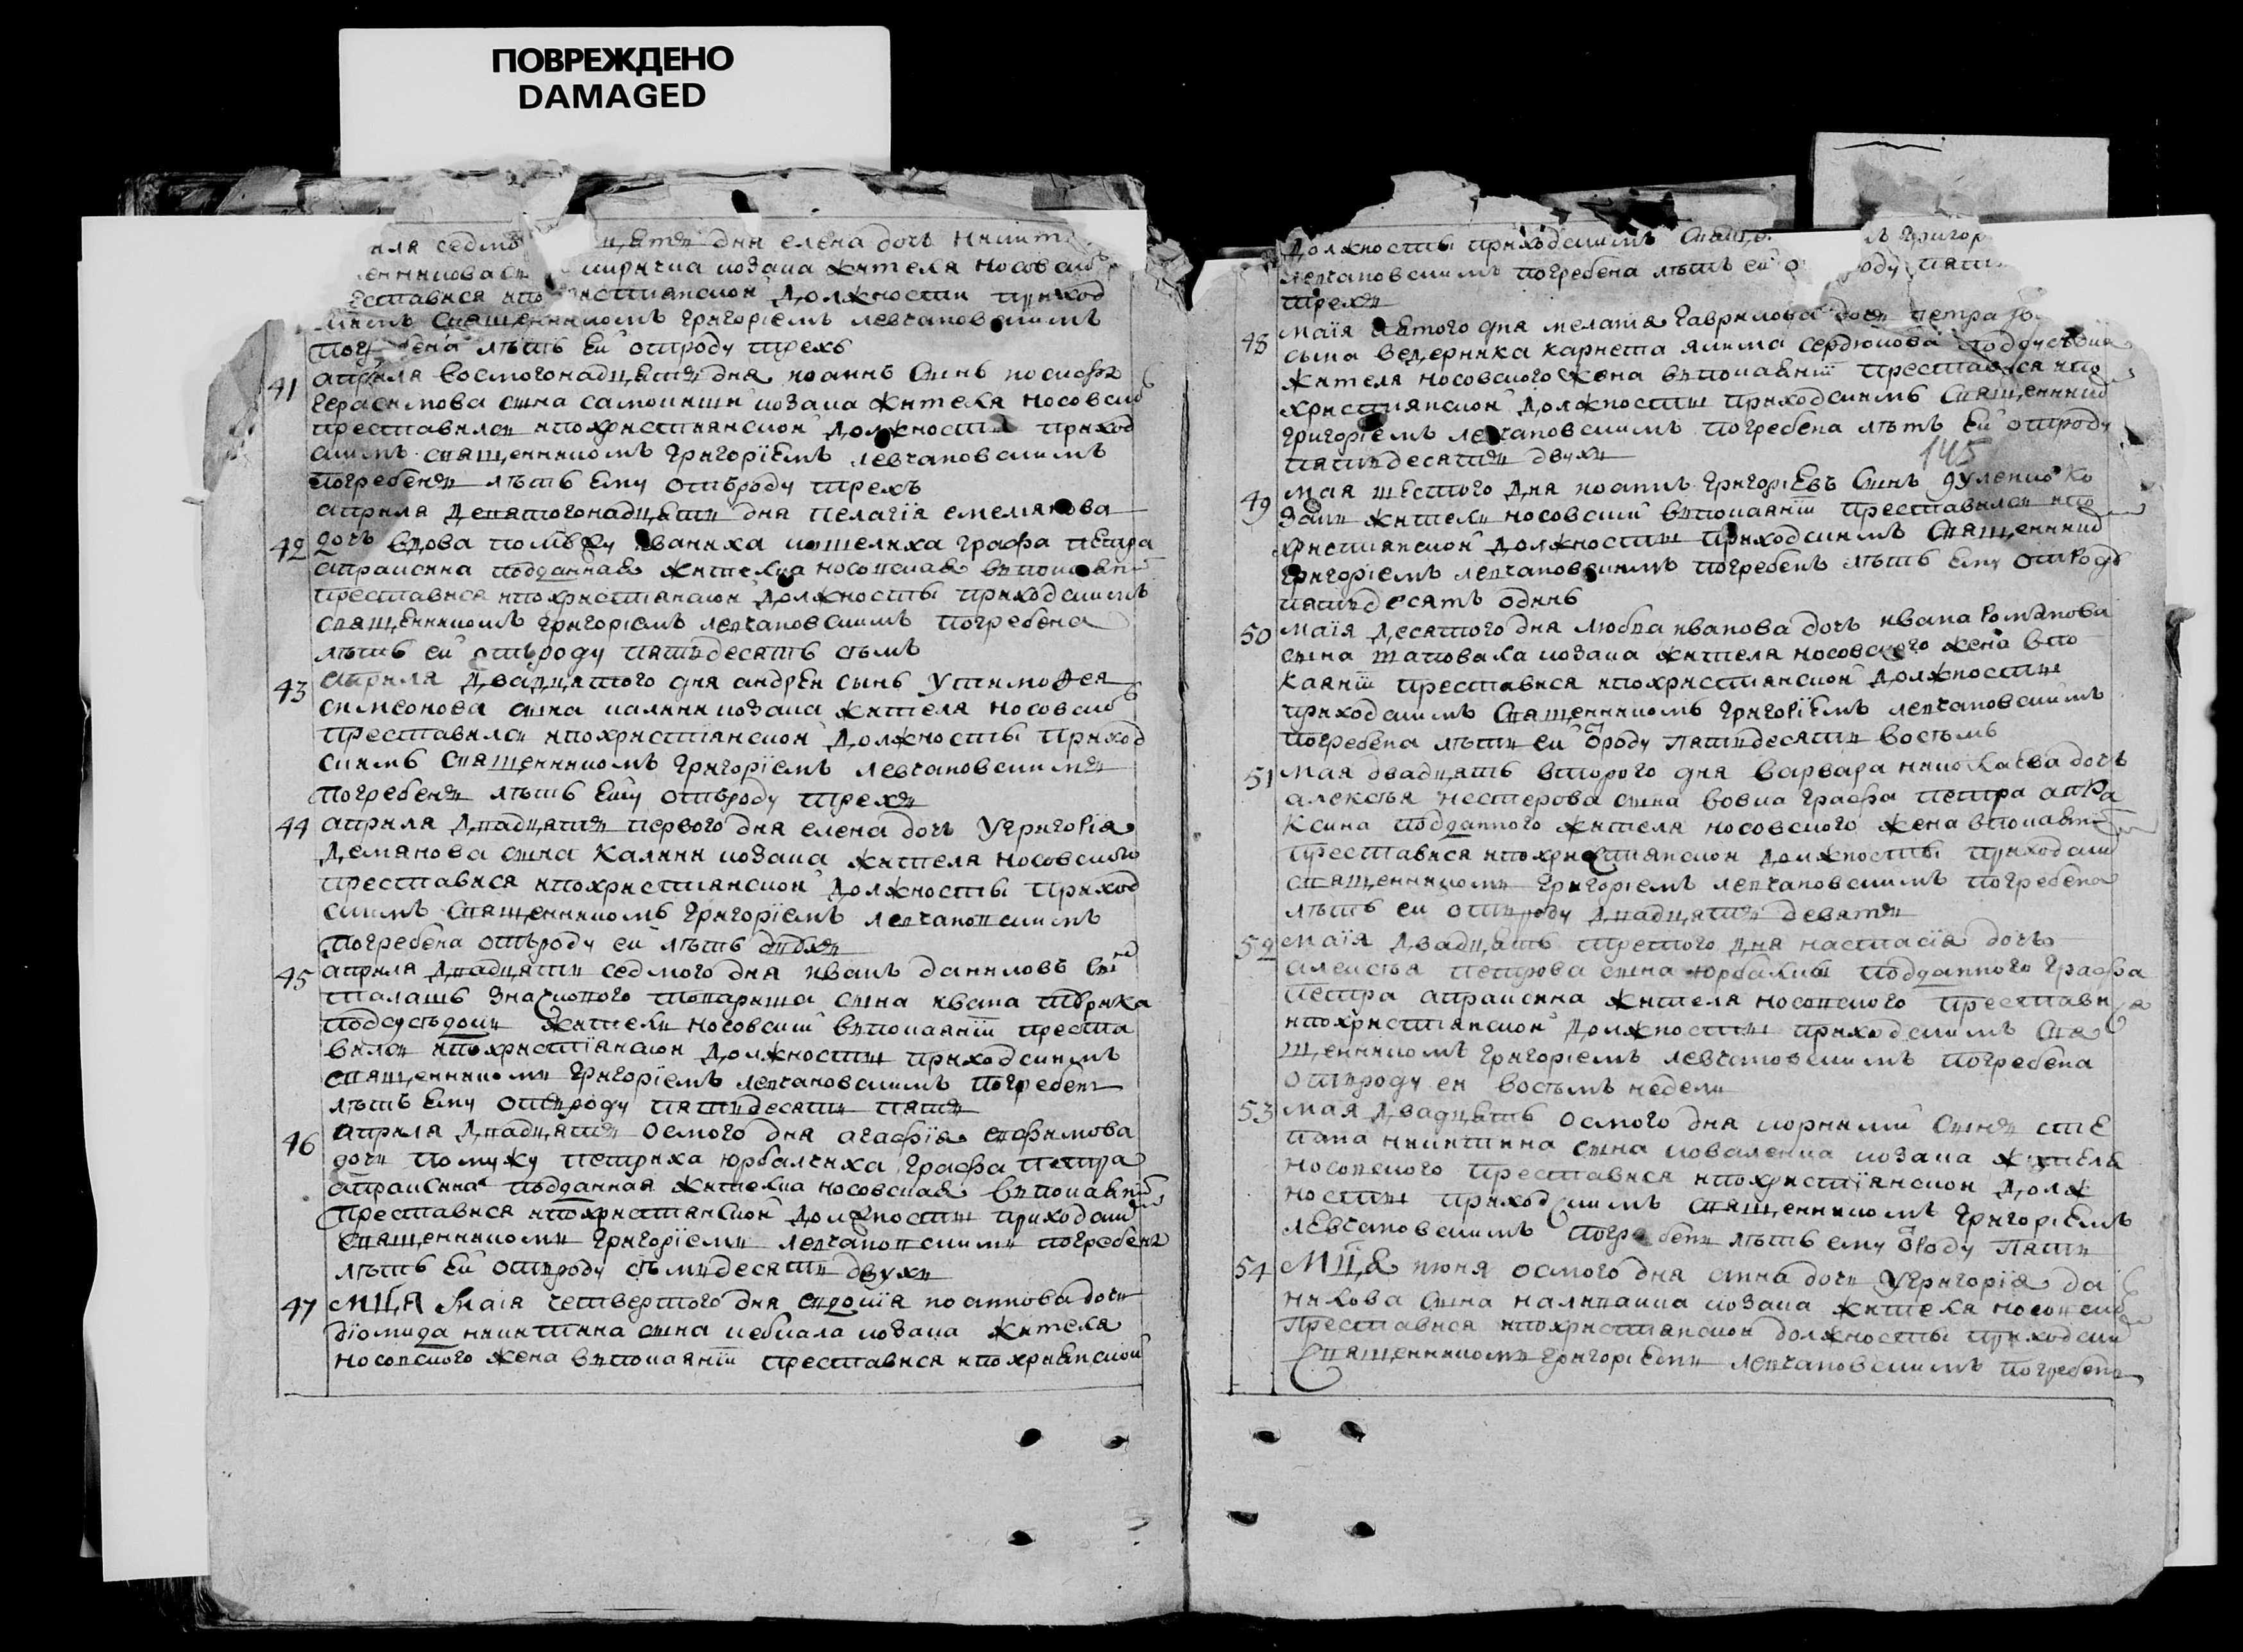 ПОВРЕЖДЕНО
DAMAGED
дня елена дочь
козака жителя носовско
должности приход
скимъ священникомъ григоріемъ левчановскимъ
лѣтъ ей отроду трехъ
41 априля восмогонадцять дня иоаннъ синъ иосифа
герасимова сина козака жителя носовско
преставился ипохристиянской должности приход
скимъ священникомъ григоріемъ левчановскимъ
погребенъ лѣтъ ему отъроду трехъ
42 априля девятогонадцять дня пелагіа емелянова
дочь вдова помужу иваниха кошелиха графа петра
апраксина подданная жителка носовская впокаян
преставися ипохристіянской должносты приходскимъ
священникомъ григоріемъ левчановскимъ погребена
лѣтъ ей отъроду пятъдесятъ
43 априля двадцятого дня андрей сынъ утимофея
симеонова сина калини козака жителя носовско
преставился ипохристіянской должносты приход
скимъ священникомъ григоріемъ левчановскимъ
погребенъ лѣтъ ему отъроду трехъ
44 априля двадцять первого дня елена дочь угригорія
демянова сина калини козака жителя носовского
преставися ипохристиянской должносты приход
скимъ священникомъ григоріемъ левчановскимъ
погребена отъроду ей лѣтъ двохъ
45 априля двадцять седмого дня иванъ даниловъ син
талашъ значкового товариша сина ивана
подсусѣдокъ жителъ носовский въпокаянїи преста
вился ипохристїянской должности приходскимъ
священникомъ григоріемъ левчановскимъ погребенъ
лѣтъ ему отъроду пятъдесятъ пятъ
46 априля двадцять осмого дня агафїя ефимова
дочъ помужу петриха юрбалчиха графа петра
апраксина подданная жителка носовская въпокаян
преставися ипохристиянской должности приходски
священникомъ григоріемъ левчановскимъ погребена
лѣтъ ей отъроду семъдесятъ двухъ
47 мца маія четвертого дня евдокїя иоаннова дочъ
діомида никитина сина кебкала козака жителя
носовского жена въпокаянїи преставися ипохриянской
должносты приходскимъ григор
левчановскимъ погребена лѣтъ ей
трехъ
48 маїя пятого дня мелания гаврилова дочъ петра
сына ведерника карнета якима сердюкова
жителя носовского жена въпокаянїи преставися ипо
християнской должности приходскимъ священник
григоріемъ левчановскимъ погребена лѣтъ ей отроду
пятъдесятъ двухъ
145
49 мая шестого дня иоаннъ григоріевъ синъ дуленко ко
закъ жителъ носовский въпокаянїи преставился ипо
християнской должности приходскимъ священник
григоріемъ левчановскимъ погребенъ лѣтъ ему отроду
пятъдесятъ одинъ
50 маїя десятого дня любва иванова дочь ивана романова
сина шаповала козака жителя носовского жена впо
каянїи преставися ипохристиянской должности
приходскимъ священникомъ григоріемъ левчановскимъ
погребена лѣтъ ей ѿроду пятъдесятъ восѣмъ
51 мая двадцять второго дня варвара николаева дочь
алексѣя нестерова сина вовка графа петра апра
ксина подданного жителя носовского жена впокаяни
преставися ипохристиянской должносты приходски
священникомъ григоріемъ левчановскимъ погребена
лѣтъ ей отъроду двадцять девятъ
52 маїя двадцять третого дня настасїя дочь
алексѣя петрова сина юрбалки подданного графа
петра апраксина жителя носовского преставися
ипохристиянской должности приходскимъ свя
щенникомъ григоріемъ левчановскимъ погребена
отъроду ей восѣмъ неделъ
53 мая двадцять осмого дня корнилий синъ сте
пана никитина сина коваленка козака жителя
носовского преставися ипохристїянской долж
ности приходскимъ священникомъ григоріемъ
левчановскимъ погребенъ лѣтъ ему ѿроду пятъ
54 мца июня осмого дня анна дочъ угригорія да
нилова сина наливайка козака жителя носовско
преставися ипохристиянской должносты приходски
священникомъ григоріемъ левчановскимъ погребена